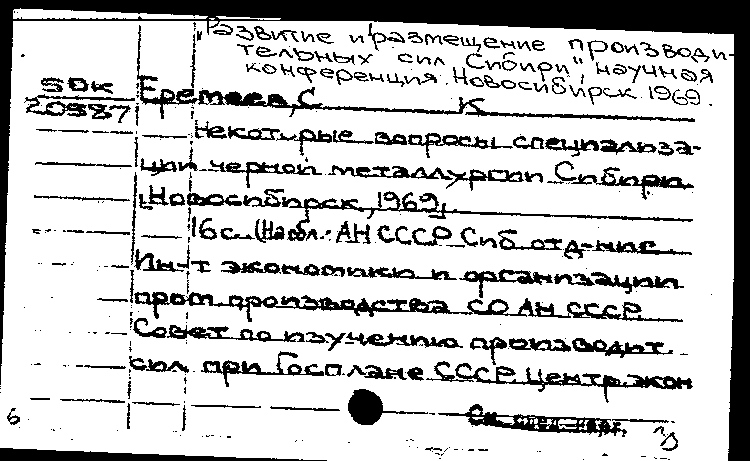 „Развитие и размещение производи-
тельных сил Сибири", научная
конференция. Новосибирск. 1969.
Еремеев, С К
20987
Некоторые вопросы специализа-
ции черной металлургии Сибири.
[Новосибирск, 1969].
16 с. (Надзл.: АН СССР. Сиб. отд-ние.
Ин-т экономики и организации
пром. производства СО АН СССР.
Совет по изучению производит.
сил при Госплане СССР. Центр. экон
См. след. карт.
6